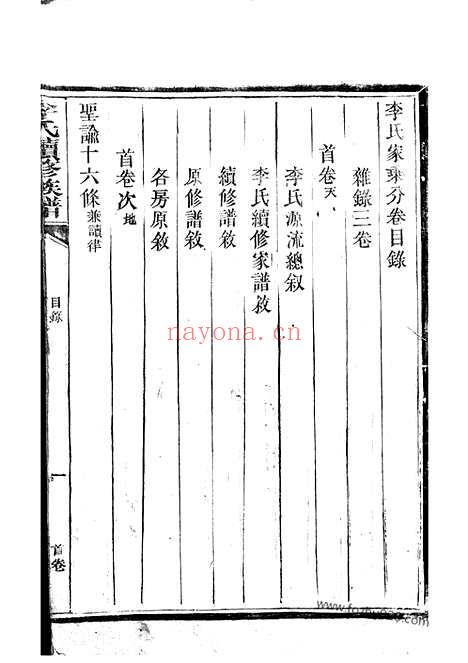 李氏家乘分卷目錄
雜錄三卷
首卷天
李氏源流總叙
李氏續修家譜敘
續修譜敘
原修譜敘
各房原敘
首卷次地
聖諭十六條兼讀律
李氏續修族譜
目錄
一
首卷
nayona.cn